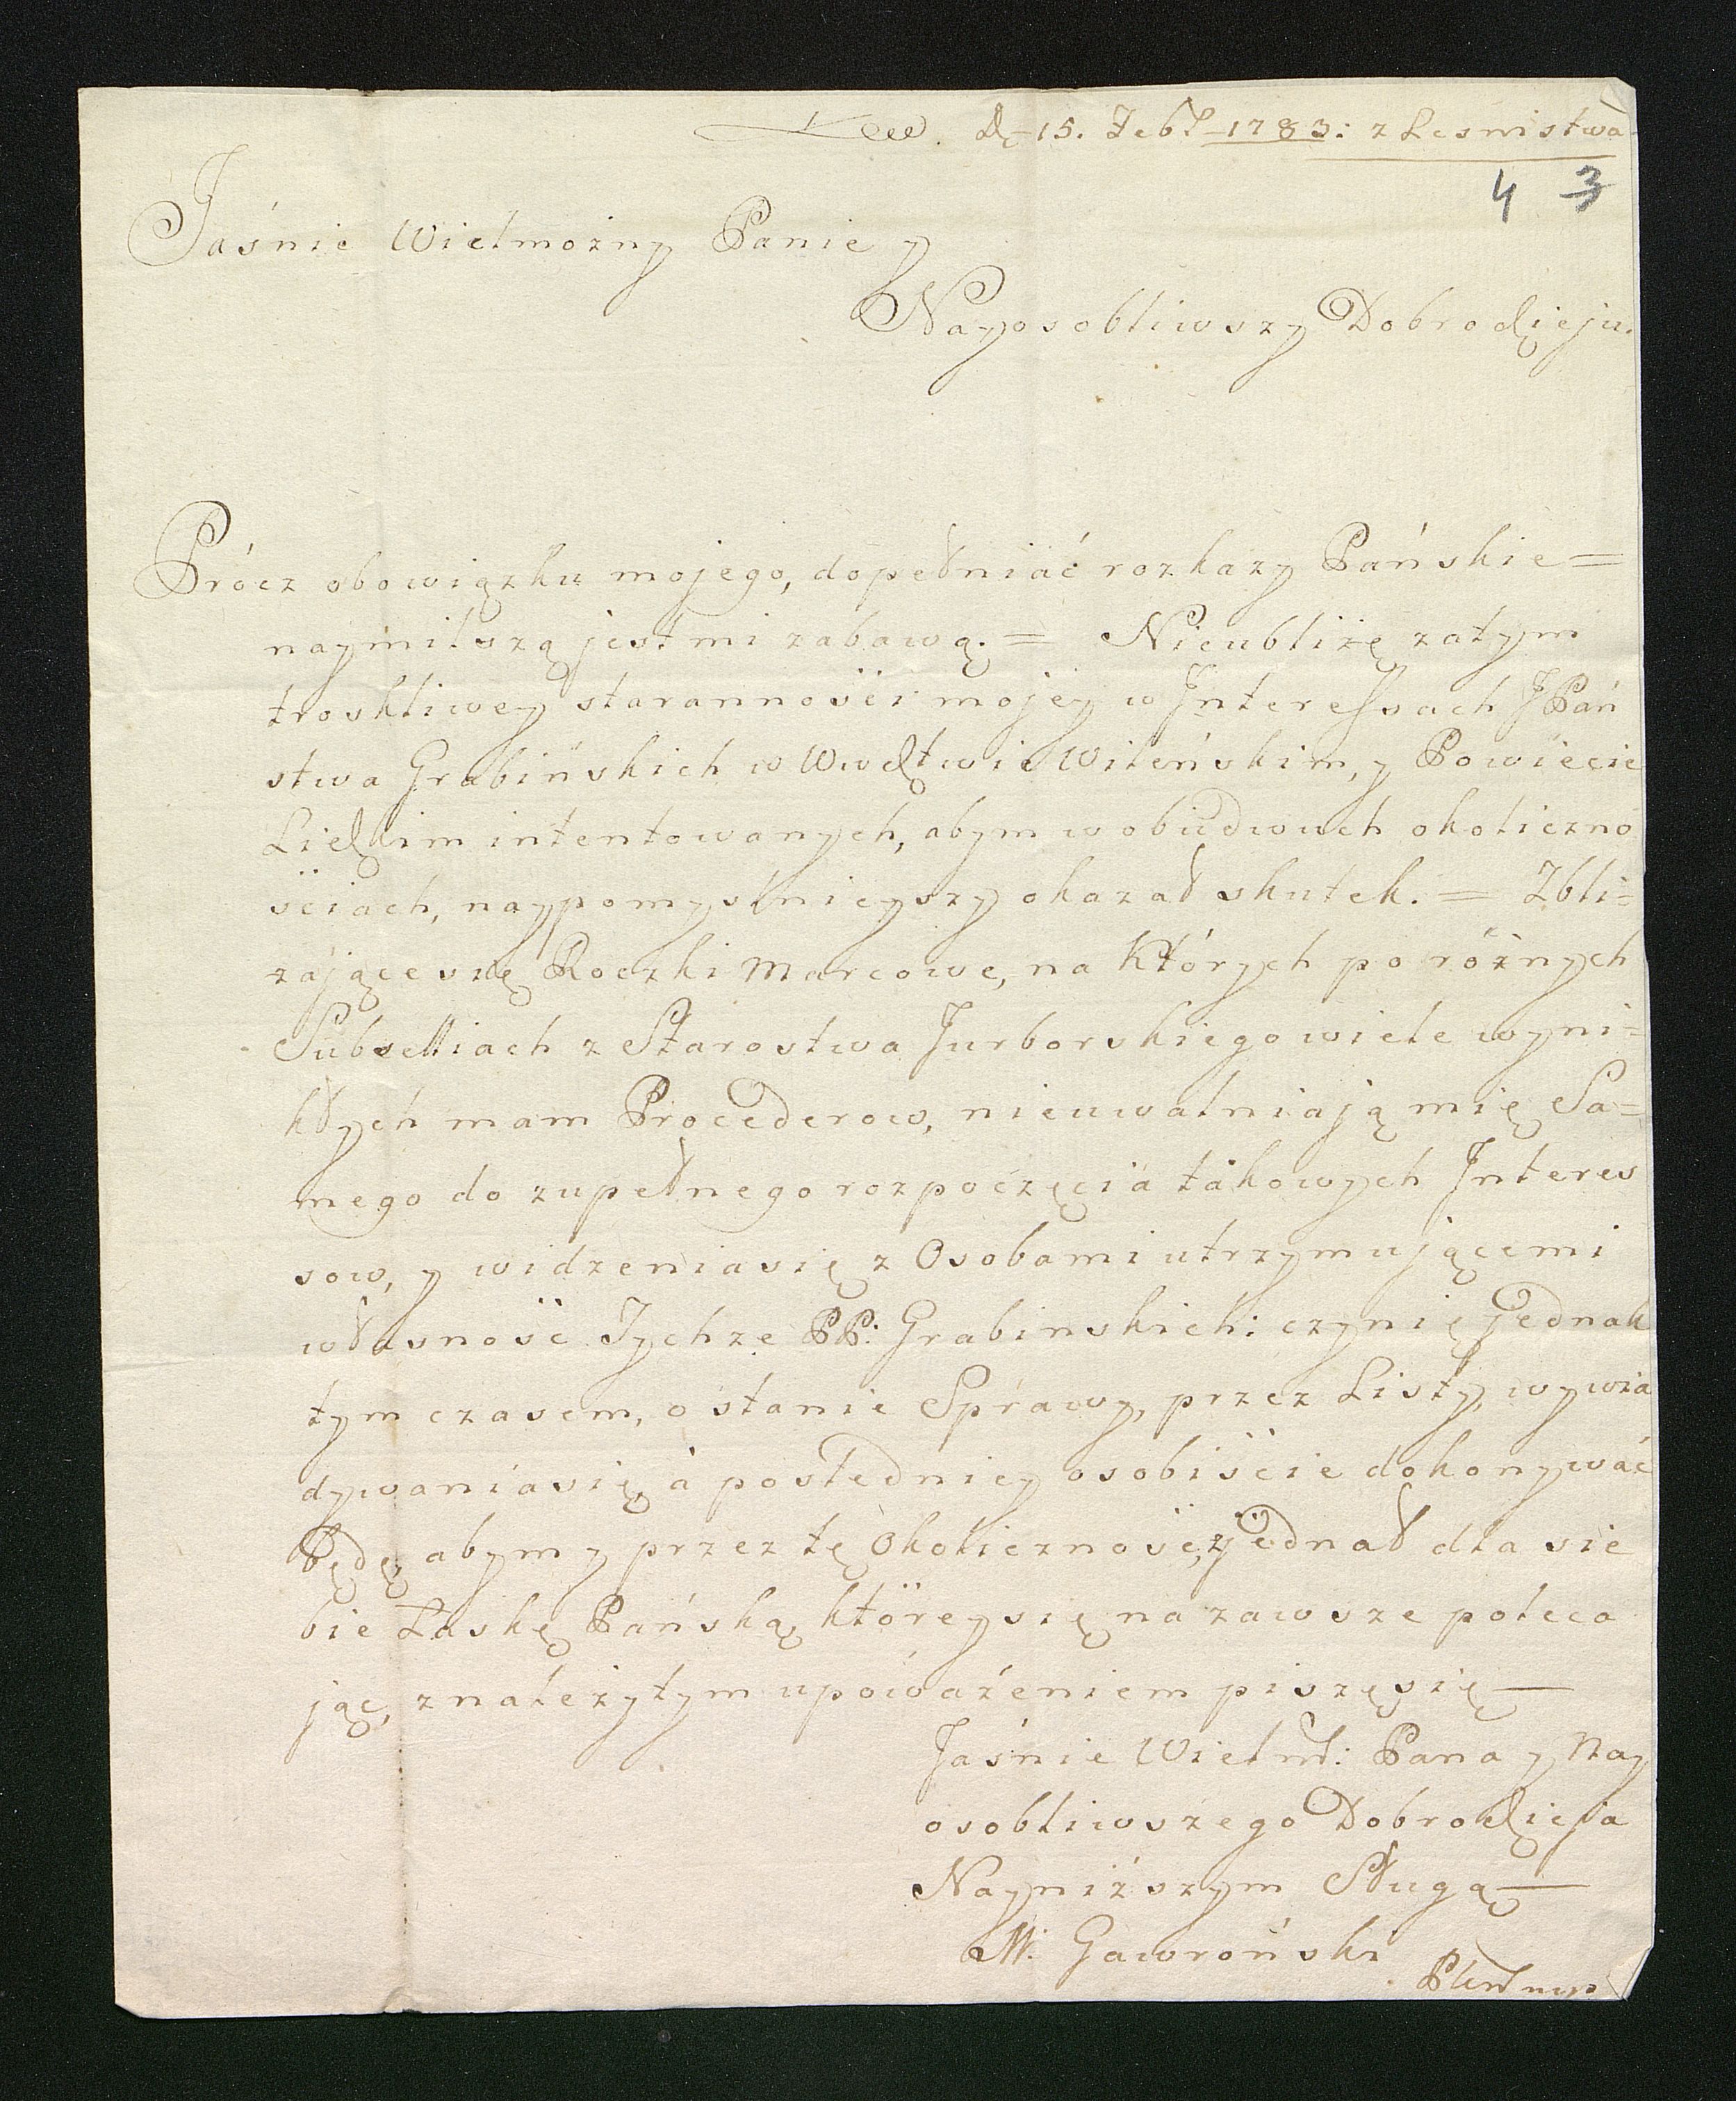 D. 15. Febr. 1783: z Leśnistwa
4 3
Jaśnie Wielmożny Panie y
Nayosobliwszy Dobrodzieju.
Prócz obowiązku mojego, dopełniać rozkazy Pańskie =
naymilszą jest mi zabawą. = Nieubliżę zatym
troskliwey starannośći mojey w Interessach JPań
stwa Grabińskich w Wwdztwie Wileńskim, y Powiećie
Lidzkim intentowanych, abym w obudwuch okoliczno
śćiach, naypomyślnieyszy okazał skutek. = Zbli=
żające się Roczki Marcowe, na których po różnych
Subselliach z Starostwa Jurborskiego wiele wyni=
kłych mam Procederow, nieuwalniają mię Sa=
mego do zupełnego rozpoczęcia takowych Interes
sow, y widzenia się z Osobami utrzymującemi
własność Tychże PP: Grabinskich: czynię jednak
tym czasem, o stanie Sprawy, przez Listy, wywia
dywania się, à posledniey osobiśćie dokonywać
Będę, abym y przez tę Okoliczność, zjednał dla sie
bie Łaskę Pańską, któreysię na zawsze poleca
jąc, z należytym upoważeniem piszęsię —
Jaśnie Wielm: Pana y Nay
osobliwszego Dobrodzieja
Nayniższym Sługą —
M. Gawroński